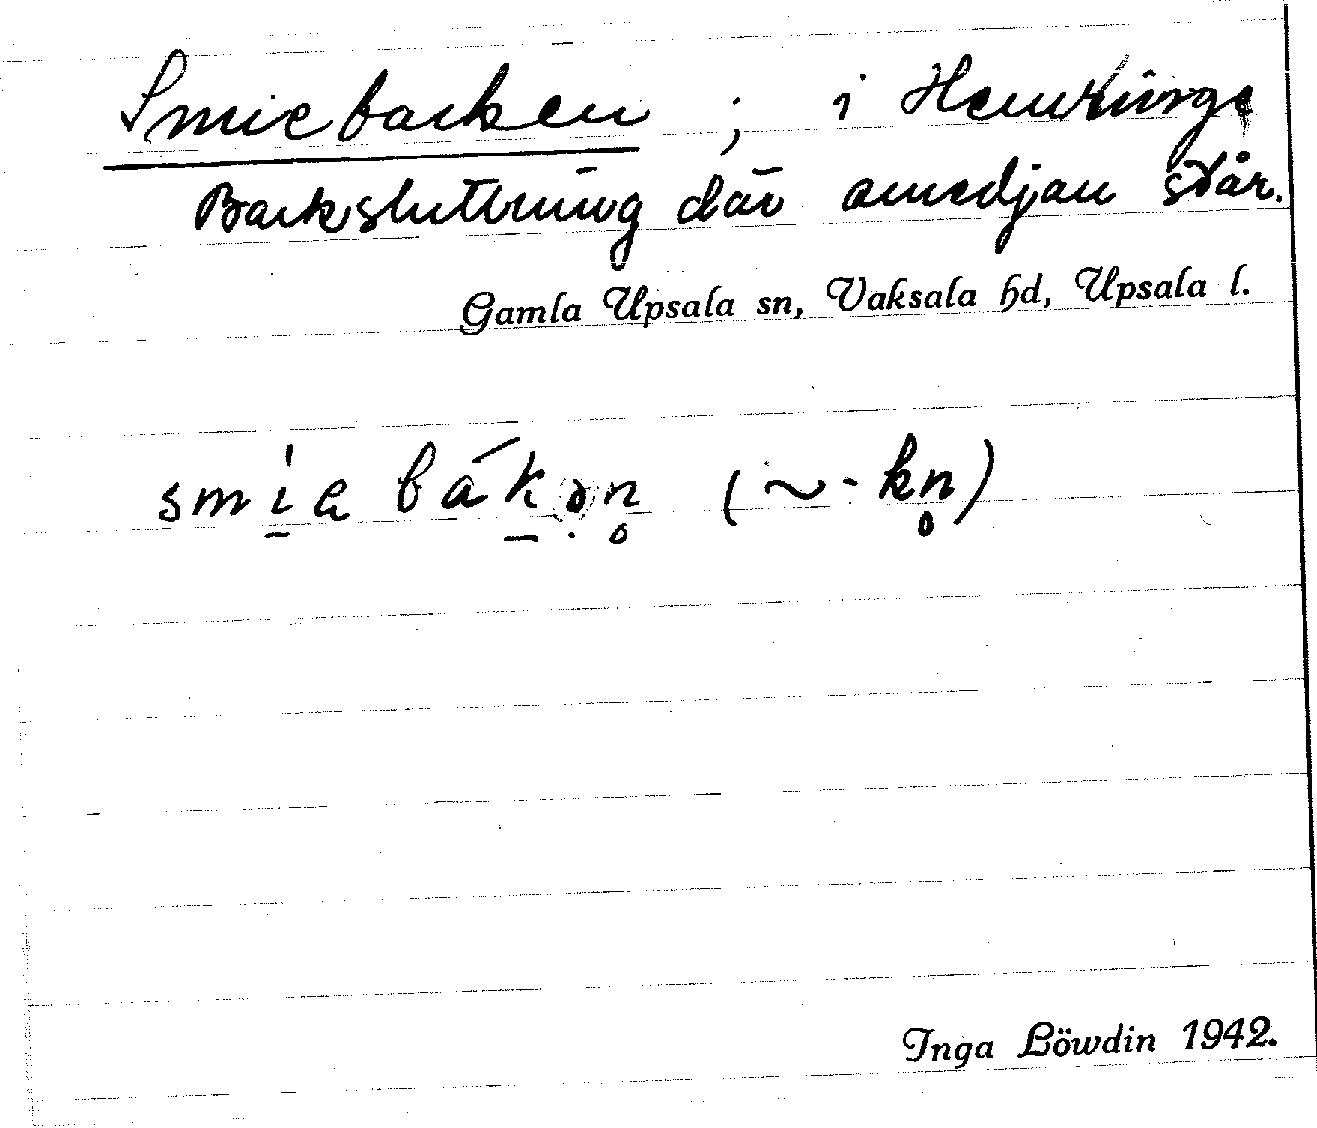 Smiebacken ; i Hemringe
Backsluttning där smedjan står.
Gamla Upsala sn, Vaksala hd, Upsala l.
smi̱e bákən̥ (~-kn̥)
Inga Löwdin 1942.